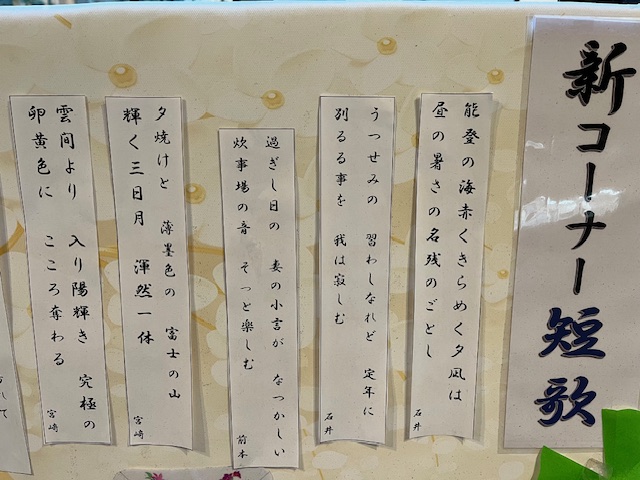 新コーナー短歌
能登の海赤くきらめく夕凪は
昼の暑さの名残のごとし
石井
うつせみの 習わしなれど 定年に
別るる事を 我は寂しむ
石井
過ぎし日の 妻の小言が なつかしい
炊事場の音 そっと楽しむ
前本
夕焼けと 薄墨色の 富士の山
輝く三日月 渾然一体
宮崎
雲間より 入り陽輝き 究極の
卵黄色に こころ奪わる
宮崎